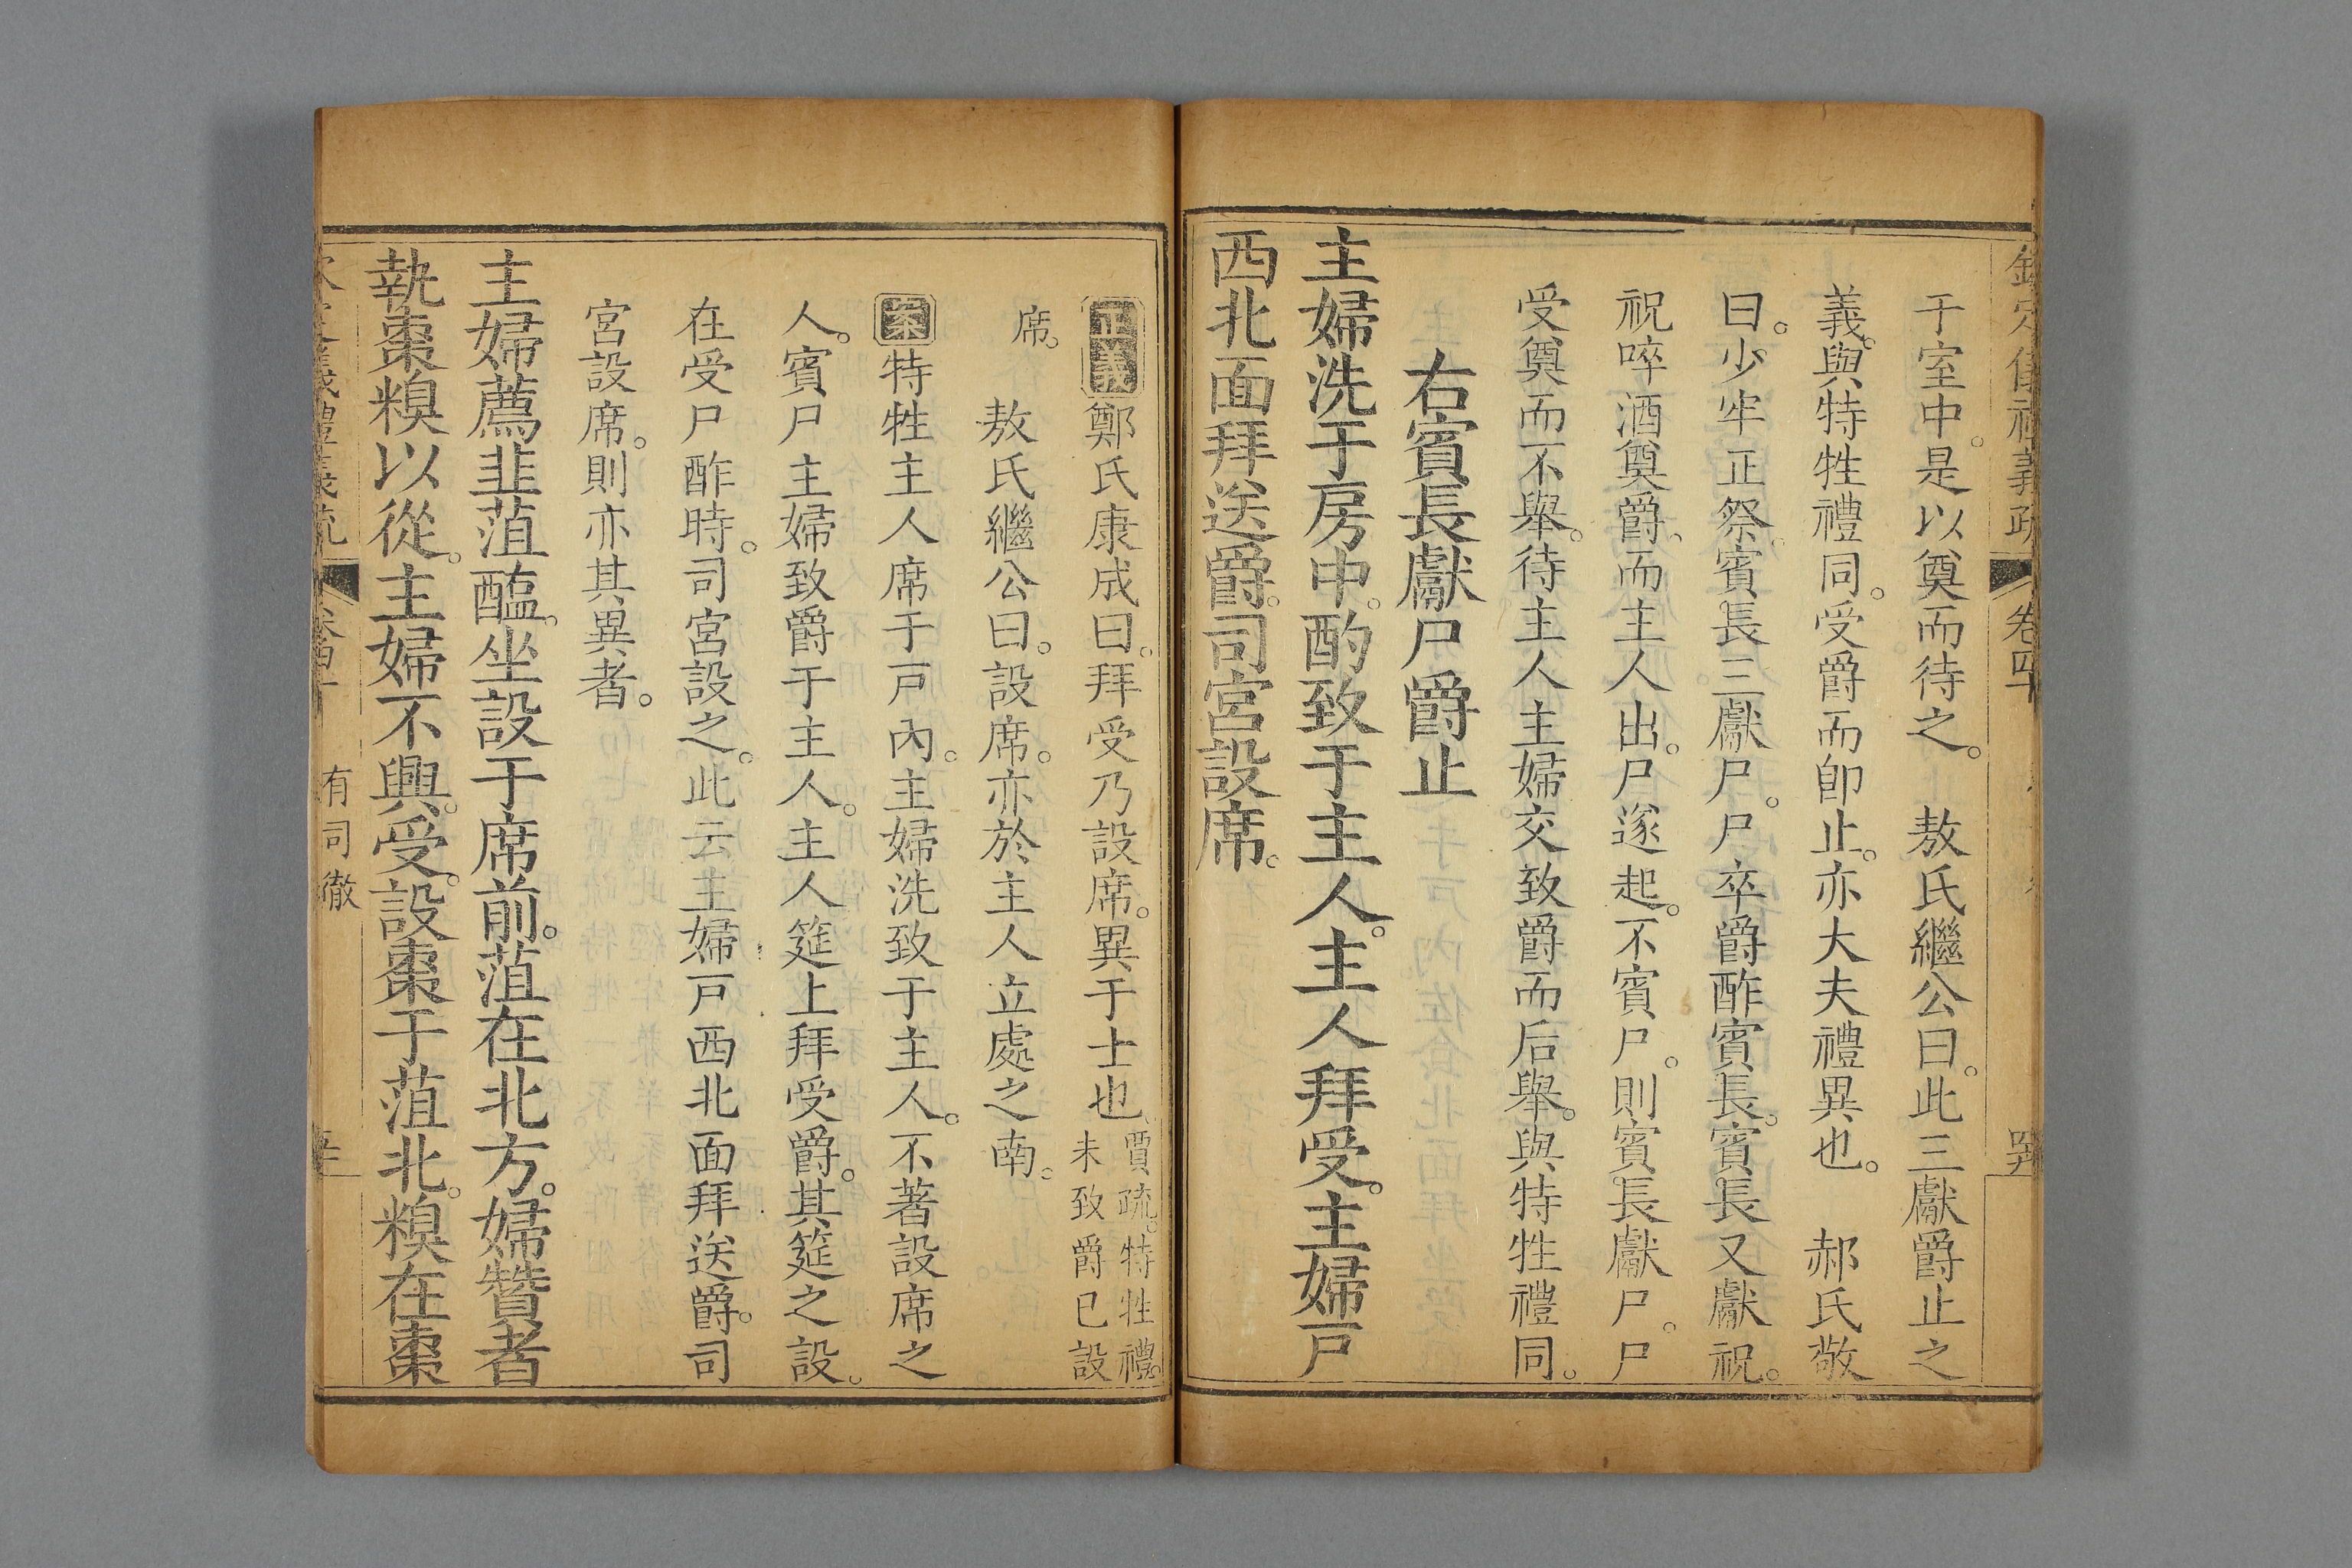 欽定儀禮義疏 卷四十
于室中。是以奠而待之。 敖氏繼公曰。此三獻爵止之
義。與特牲禮同。受爵而卽止。亦大夫禮異也。 郝氏敬
曰。少牢正祭。賓長三獻尸。尸卒爵酢賓長。賓長又獻祝。
祝啐酒奠爵。而主人出。尸遂起。不賓尸。則賓長獻尸。尸
受奠而不舉。待主人主婦交致爵而后舉。與特牲禮同。
右賓長獻尸爵止
主婦洗于房中。酌致于主人。主人拜受。主婦戸
西北面拜送爵。司宮設席。
正義 鄭氏康成曰。拜受乃設席。異于士也。賈疏。特牲禮。未致爵已設
席。 敖氏繼公曰。設席。亦於主人立處之南。
案 特牲主人席于戸內。主婦洗致于主人。不著設席之
人。賓尸主婦致爵于主人。主人筵上拜受爵。其筵之設。
在受尸酢時。司宮設之。此云主婦戸西北面拜送爵。司
宮設席。則亦其異者。
主婦薦韭菹醢。坐設于席前。菹在北方。婦贊者
執棗糗以從。主婦不興。受。設棗于菹北。糗在棗
有司徹